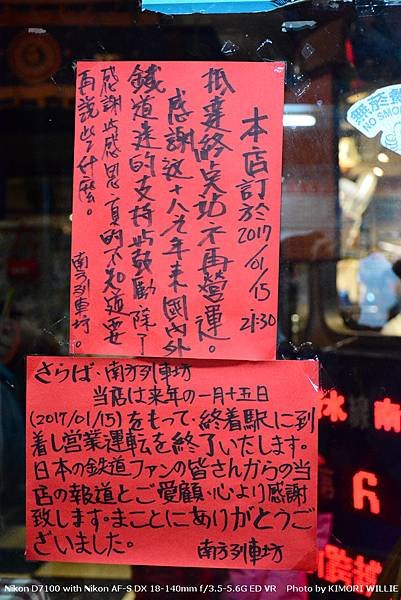 本店訂於2017/01/15 21:30
抵達終点站不再營運。
感謝這十八年來國內外
鐵道迷的支持与鼓勵除了
感謝与感恩真的不知道要
再說些什麼。
南方列車坊。
さらば、南方列車坊
当店は来年の一月十五日
(2017/01/15)をもって、終着駅に到
着し営業運転を終了いたします。
日本の鉄道ファンの皆さんからの当
店の報道とご愛顧、心より感謝
致します。まことにありがとうご
ざいました。
南方列車坊
無菸餐
NO SMO
南
6
Nikon D7100 with Nikon AF-S DX 18-140mm f/3.5-5.6G ED VR Photo by KIMORI WILLIE